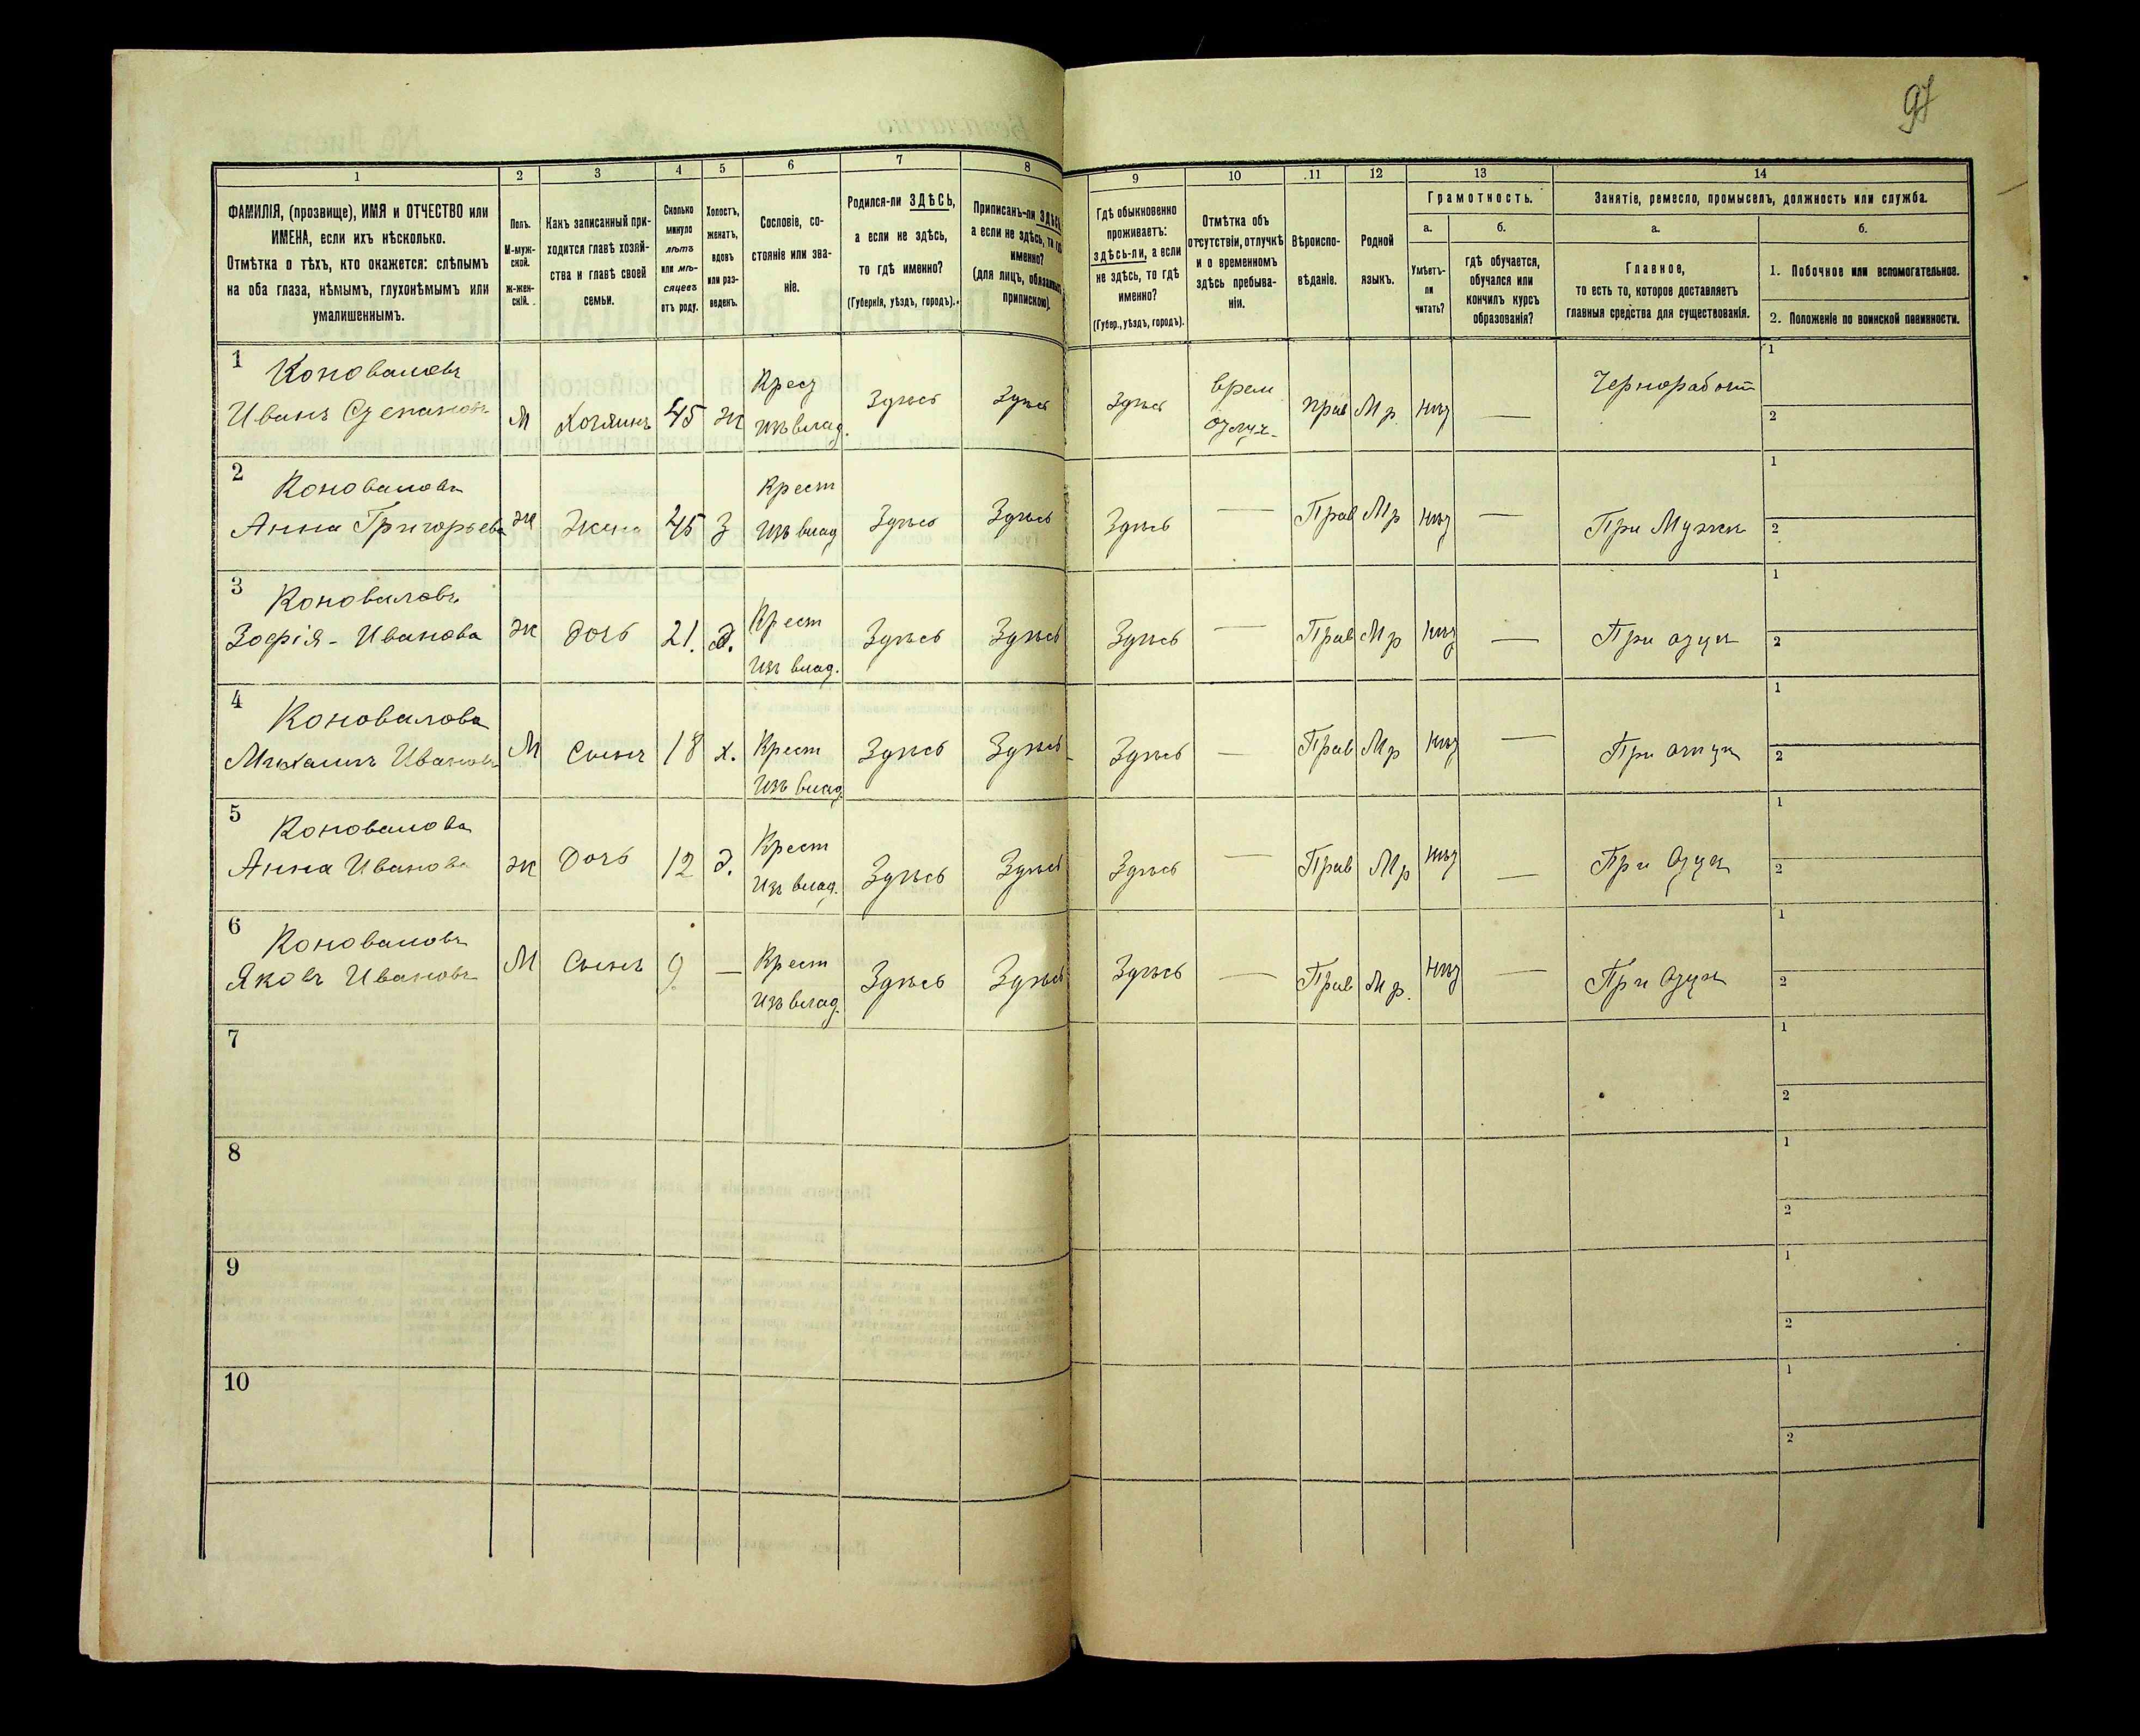 97
1 2 3 4 5 6 7 8 9 10 11 12 13 14
ФАМИЛІЯ, (прозвище), ИМЯ и ОТЧЕСТВО или
ИМЕНА, если ихъ нѣсколько.
Отмѣтка о тѣхъ, кто окажется: слѣпымъ
на оба глаза, нѣмымъ, глухонѣмымъ или
умалишеннымъ.
Полъ.
М-муж-
ской.
Ж-жен-
скій.
Какъ записанный при-
ходится главѣ хозяй-
ства и главѣ своей
семьи.
Сколько
минуло
лѣтъ
или мѣ-
сяцевъ
отъ роду.
Холостъ,
женатъ,
вдовъ
или раз-
веденъ.
Сословіе, со-
стояніе или зва-
ніе.
Родился-ли ЗДѢСЬ,
а если не здѣсь,
то гдѣ именно?
(Губернія, уѣздъ, городъ).
Приписанъ-ли ЗДѢСЬ,
а если не здѣсь, то гдѣ
именно?
(для лицъ, обязанныхъ
припискою).
Гдѣ обыкновенно
проживаетъ:
здѣсь-ли, а если
не здѣсь, то гдѣ
именно?
(Губер., уѣздъ, городъ).
Отмѣтка объ
отсутствіи, отлучкѣ
и о временномъ
здѣсь пребыва-
ніи.
Вѣроиспо-
вѣданіе.
Родной
языкъ.
Грамотность.
а.
Умѣетъ-
ли
читать?
б.
гдѣ обучается,
обучался или
кончилъ курсъ
образованія?
Занятіе, ремесло, промыселъ, должность или служба.
а.
Главное,
то есть то, которое доставляетъ
главныя средства для существованія.
б.
1. Побочное или вспомогательное.
2. Положеніе по воинской повинности.
1 Коноваловъ Крест врем Чернорабочт 1
Иванъ Степановъ М Хозяинъ 45 ж Изъ влад. Здѣсь Здѣсь Здѣсь отлуч. Прав Мр. нѣт — 2
2 Коновалова Крест 1
Анна Григорьева ж Жена 45 З Изъ влад Здѣсь Здѣсь Здѣсь — Прав Мр нѣт — При Мужѣ 2
3 Коноваловъ Крест 1
Зофія - Иванова ж дочь 21. д. Изъ влад. Здѣсь Здѣсь Здѣсь — Прав Мр нѣт — При отцѣ 2
4 Коновалова Крест 1
Михаилъ Ивановъ М Сынъ 18 х. Изъ влад. Здѣсь Здѣсь Здѣсь — Прав Мр нѣт — При отцѣ 2
5 Коновалова Крест 1
Анна Иванова ж дочь 12 д. Изъ влад. Здѣсь Здѣсь Здѣсь — Прав Мр нѣт — При Отцѣ 2
6 Коноваловъ Крест 1
Яковъ Ивановъ М Сынъ 9. — Изъ влад. Здѣсь Здѣсь Здѣсь — Прав Мр. нѣт — При Отцѣ 2
7 1
2
8 1
2
9 1
2
10 1
2